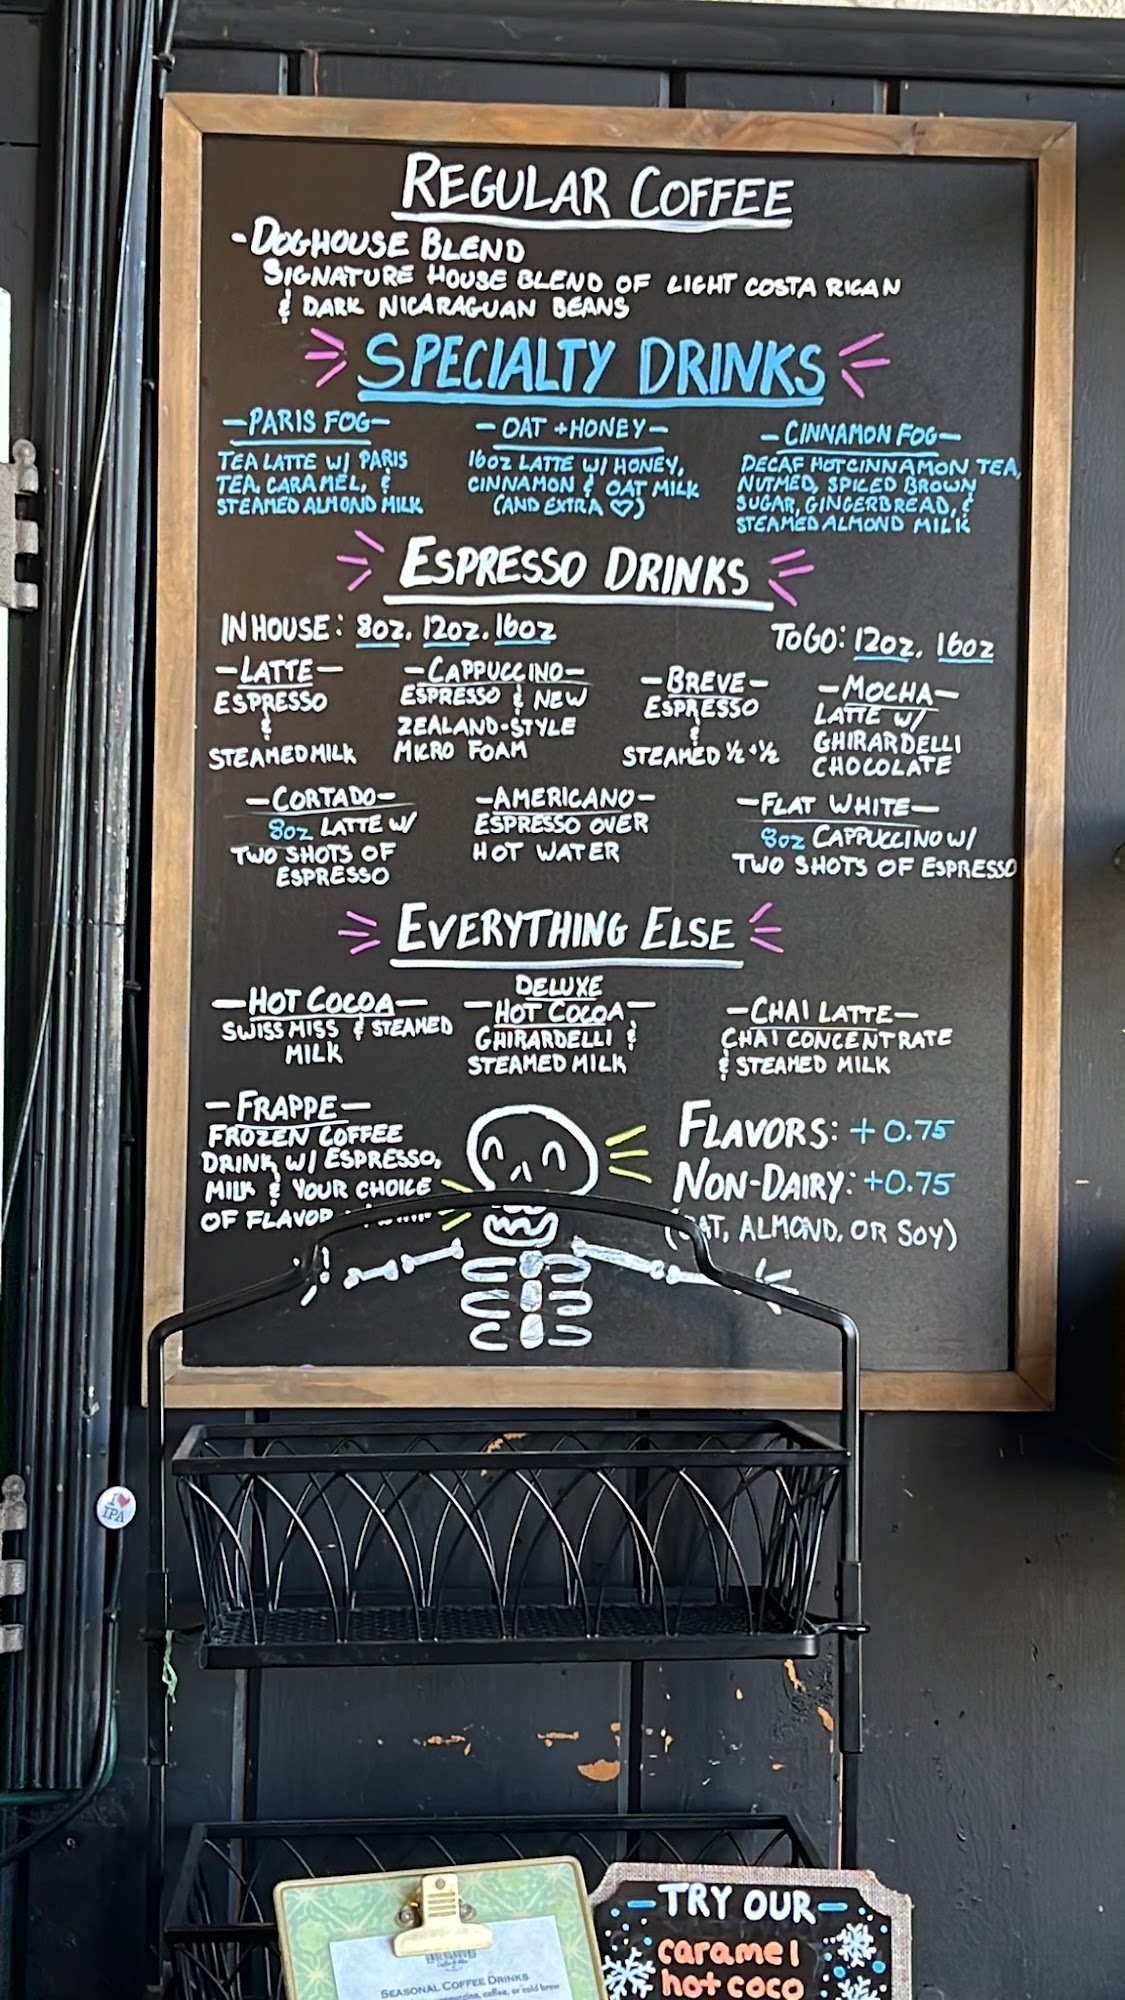 REGULAR COFFEE
-DOGHOUSE BLEND
SIGNATURE HOUSE BLEND OF LIGHT COSTA RICAN
& DARK NICARAGUAN BEANS
SPECIALTY DRINKS
-PARIS FOG-
TEA LATTE W/ PARIS
TEA, CARAMEL, &
STEAMED ALMOND MILK
-OAT + HONEY-
16oz LATTE W/ HONEY,
CINNAMON & OAT MILK
(AND EXTRA ♡)
-CINNAMON FOG-
DECAF HOT CINNAMON TEA,
NUTMED, SPICED BROWN
SUGAR, GINGERBREAD, &
STEAMED ALMOND MILK
ESPRESSO DRINKS
IN HOUSE: 8oz, 12oz, 16oz
TO GO: 12oz, 16oz
-LATTE-
ESPRESSO
&
STEAMED MILK
-CAPPUCCINO-
ESPRESSO & NEW
ZEALAND-STYLE
MICRO FOAM
-BREVE-
ESPRESSO
&
STEAMED ½+½
-MOCHA-
LATTE W/
GHIRARDELLI
CHOCOLATE
-CORTADO-
8oz LATTE W/
TWO SHOTS OF
ESPRESSO
-AMERICANO-
ESPRESSO OVER
HOT WATER
-FLAT WHITE-
8oz CAPPUCCINO W/
TWO SHOTS OF ESPRESSO
EVERYTHING ELSE
-HOT COCOA-
SWISS MISS & STEAMED
MILK
DELUXE
-HOT COCOA-
GHIRARDELLI &
STEAMED MILK
-CHAI LATTE-
CHAI CONCENTRATE
& STEAMED MILK
-FRAPPE-
FROZEN COFFEE
DRINK W/ ESPRESSO,
MILK & YOUR CHOICE
OF FLAVOR
FLAVORS: +0.75
NON-DAIRY: +0.75
ALMOND, OR SOY)
I ♥
IPA
SEASONAL COFFEE DRINKS
coffee, or cold brew
-TRY OUR-
caramel
hot coco